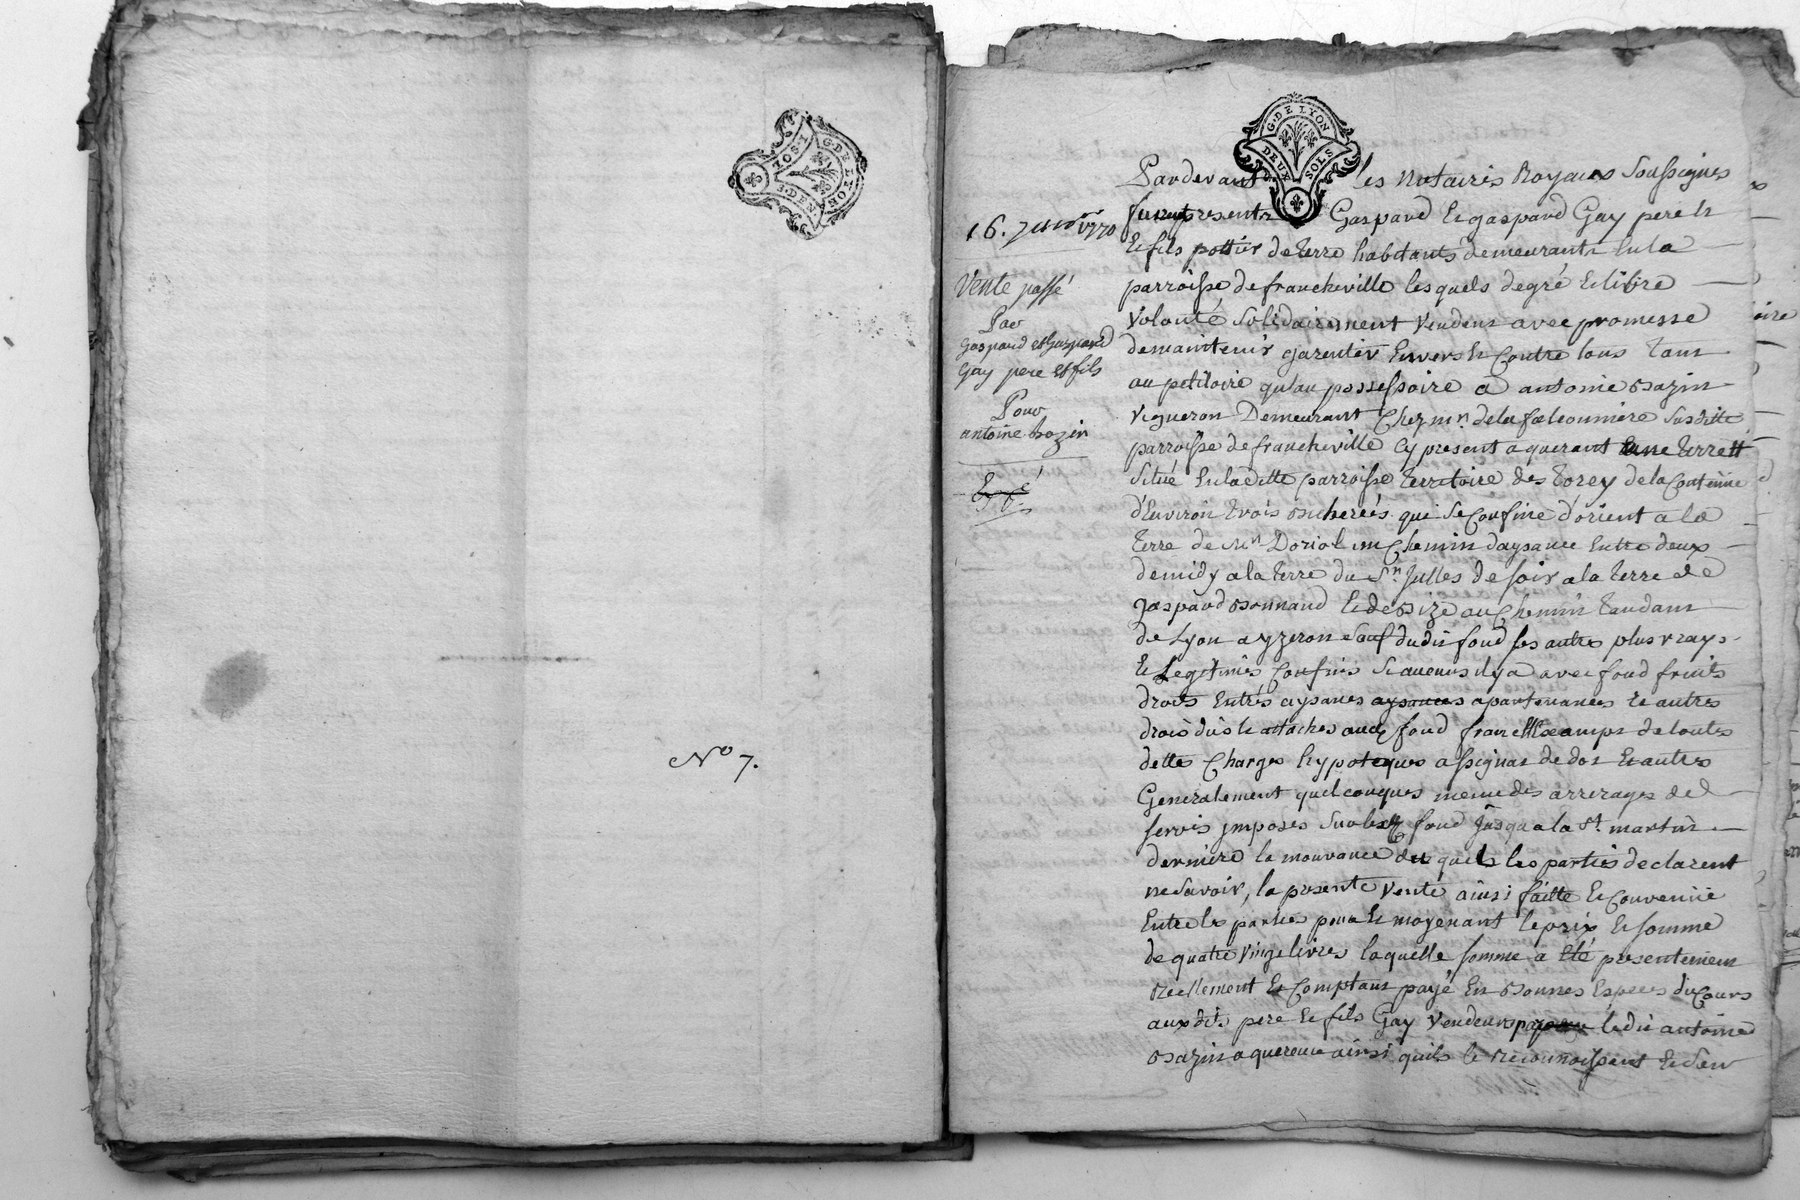 G. DE LYON
DEUX SOLS
No 7.
G. DE LYON
DEUX SOLS
16. Janv.er 1770
Vente passé
Par
gaspard et Gaspard
Gay pere et fils
Pour
antoine bazin
Pardevant les Notaires Royaux Soussignes
furent presents Gaspard et gaspard Gay pere et
et fils pottier de terre habitants demeurants en la
parroisse de francheville lesquels de gré et libre
Volonté Solidairement Vendent avec promesse
de maintenir garentir Envers et Contre tous tant
au petitoire qu'au possessoire a antoine Bazin
vigneron Demeurant Chez mr. de la faleonniere Susditte
parroisse de francheville Cy present aquerant une terre
Situé En la ditte parroisse territoire des torey de la Contenüe
d'Environ trois Bicherées qui se Confine d'orient a la
terre de Mr. Doriol un Chemin daysance Entre deux
de midy a la terre du Sr. Julles de soir a la terre de
gaspard Bonnand et de Bize au Chemin tendant
de Lyon a yzeron Sauf dudit fond ses autres plus vrays
et Legitimes Confins Si aucuns il y a avec fond fruits
droits Entrés aysances aysances apartenances et autres
drois dus et attachés audt. fond franc et Exempt de toutes
dettes Charges hypoteques assignat de dot et autres
Generalement quelconques meme des arrerages de
servis jmposés Sur led. fond jusqua la St. martin
derniere la mouvance du quel les parties declarent
ne Savoir, la presente Vente ainsi faitte et Convenüe
Entre les parties pour et moyenant le prix et somme
de quatre vingt livres laquelle somme a Eté presentement
reellement et Comptant payé En Bonnes Especes du Cours
aux dits pere et fils Gay Vendeurs par ledit antoine
Bazin aquereur ainsi qu'ils le reconnoissent et s'en